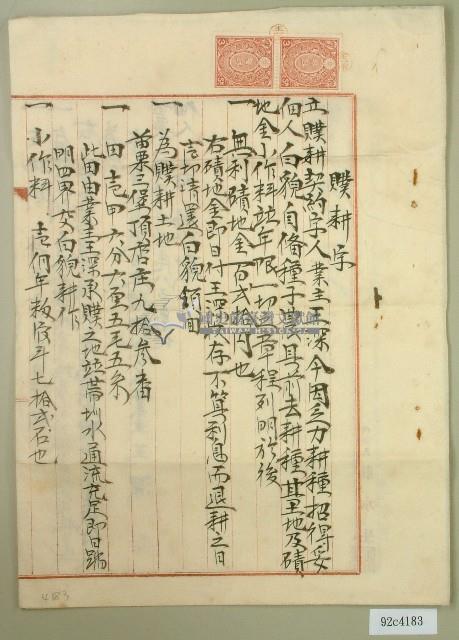 贌耕字
立贌耕契約字人業主王深今因乏力耕種招得妥
個人白貌自備種子農具前去耕種其土地及磧
地金小作料並年限一切章程列明於後
一 無利磧地金百弍拾円也
右磧地金即日付王深存不算利息而退耕之日
言却清還白貌領回
一 為贌耕土地
苗栗三堡頂店庄九拾參番
一 田 壱甲六分六厘五毛五糸
此田由業主王深承贌之地並帶圳水通流充足即日踏
明四界交白貌耕作
一 小作料 壱個年穀 七拾弍石也
TAIWAN
483
92c4183